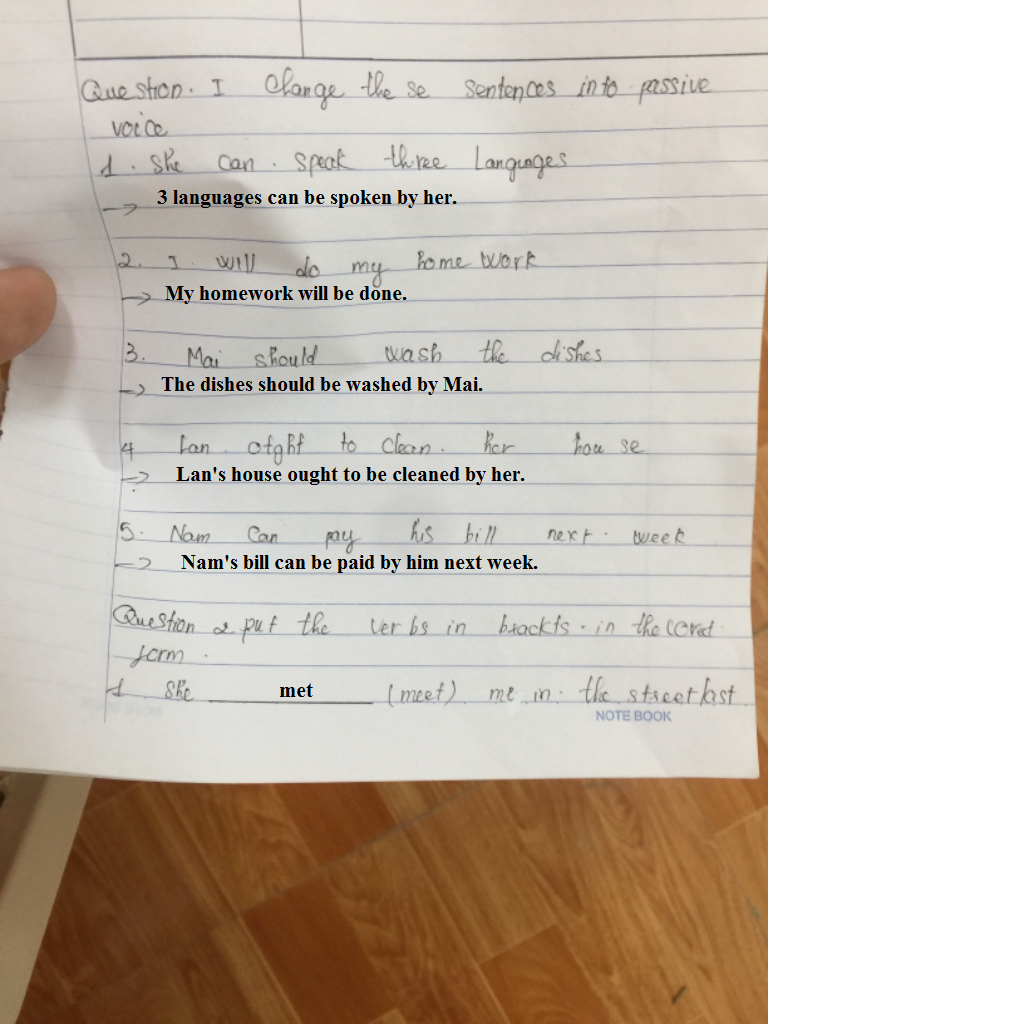 Question. I Change the se sentences into passive
voice
1. She can. speak three languages
→ 3 languages can be spoken by her.
2. I will do my home work
→ My homework will be done.
3. Mai should wash the dishes
→ The dishes should be washed by Mai.
4 Lan to clean. her hou se
→ Lan's house ought to be cleaned by her.
5. Nam Can pay his bill next. week
→ Nam's bill can be paid by him next week.
Question 2 put the ver bs in brackts. in the
form.
1 She met (meet) me in. the street last
NOTE BOOK